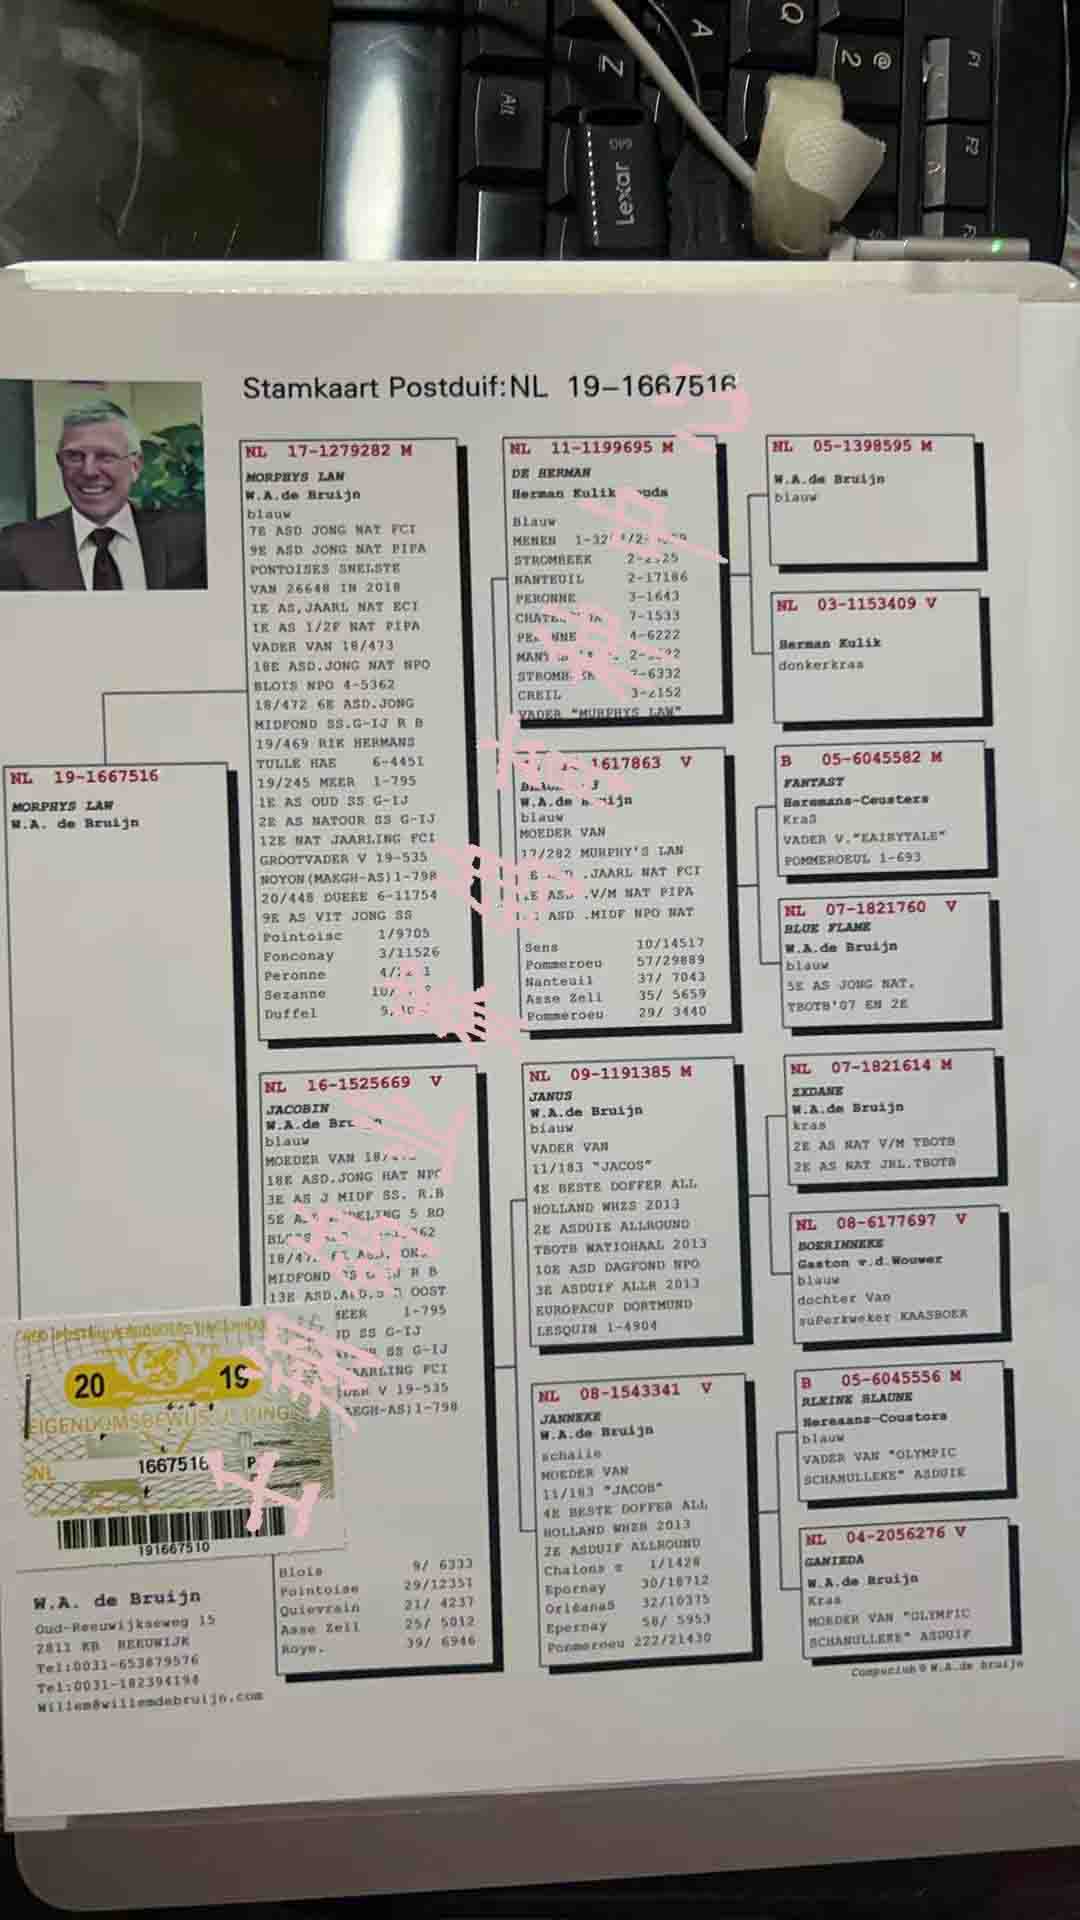 A
Q
Z
@
2
F1
F2
Alt
Lexar
64G
Stamkaart Postduif:NL 19-1667516
NL 19-1667516
MORPHYS LAW
W.A. de Bruijn
NL 17-1279282 M
MORPHYS LAN
W.A.de Bruijn
blauw
7E ASD JONG NAT FCI
9E ASD JONG NAT PIPA
PONTOISES SNELSTE
VAN 26648 IN 2018
1E AS,JAARL NAT ECI
1E AS 1/2F NAT PIPA
VADER VAN 18/473
18E ASD.JONG NAT NPO
BLOIS NPO 4-5362
18/472 6E ASD.JONG
MIDFOND SS.G-IJ R B
19/469 RIK HERMANS
TULLE HAE 6-4451
19/245 MEER 1-795
1E AS OUD SS G-IJ
2E AS NATOUR SS G-IJ
12E NAT JAARLING FCI
GROOTVADER V 19-535
NOYON(MAEGH-AS)1-798
20/448 DUEEE 6-11754
9E AS VIT JONG SS
Pointoisc 1/9705
Fonconay 3/11526
Peronne
Sezanne
Duffel
NL 16-1525669 V
JACOBIN
W.A.de
blauw
MOEDER VAN
18E ASD.JONG HAT NPO
3E AS J MIDF SS. R.B
5E 5 RO
MIDFOND R B
13E OOST
MEER 1-795
SS G-IJ
SS G-IJ
AARLING FCI
V 19-535
1-798
Blois 9/ 6333
Pointoise 29/12351
Quievrain 21/ 4237
Asse Zell 25/ 5012
Roye. 39/ 6946
NL 11-1199695 M
DE HERMAN
Herman Kulik
Blauw
MENEN
STROMBEEK
NANTEUIL 2-17186
PERONNE 3-1643
7-1533
4-6222
7-6332
CREIL 3-2152
VADER "MURPHYS LAW"
1617863 V
W.A.de
blauw
MOEDER VAN
17/282 MURPHY'S LAN
.JAARL NAT FCI
.V/M NAT PIPA
ASD .MIDF NPO NAT
Sens 10/14517
Pommeroeu 57/29889
Nanteuil 37/ 7043
Asse Zell 35/ 5659
Pommeroeu 29/ 3440
NL 09-1191385 M
JANUS
W.A.de Bruijn
biauw
VADER VAN
11/183 "JACOS"
4E BESTE DOFFER ALL
HOLLAND WHZS 2013
2E ASDUIE ALLROUND
TBOTB WATIOHAAL 2013
10E ASD DAGFOND NPO
3E ASDUIF ALLR 2013
EUROPACUP DORTMUND
LESQUIN 1-4904
NL 08-1543341 V
JANNEKE
W.A.de Bruijn
schalie
MOEDER VAN
11/183 "JACOB"
4E BESTE DOFFER ALL
HOLLAND WHZB 2013
2E ASDUIF ALLROUND
Chalons 1/1428
Epornay 30/18712
Orléans 32/10375
Epernay 58/ 5953
Pommeroeu 222/21430
NL 05-1398595 M
W.A.de Bruijn
blauw
NL 03-1153409 V
Herman Kulik
donkerkras
B 05-6045582 M
FANTAST
Haremans-Ceusters
KraS
VADER V."EAIRYTALE"
POMMEROEUL 1-693
NL 07-1821760 V
BLUE FLAME
W.A.de Bruijn
blauw
5E AS JONG NAT.
TBOTB'07 EN 2E
NL 07-1821614 M
ZXDANE
W.A.de Bruijn
kras
2E AS NAT V/M TBOTB
2E AS NAT JRL.TBOTB
NL 08-6177697 V
BOERINNEKE
Gaston v.d.Wouwer
blauw
dochter Van
suPerkweker KAASBOER
B 05-6045556 M
RLKINE BLAUNE
Hereaans-Coustors
blauw
VADER VAN "OLYMPIC
SCHANULLEKE" ASDUIE
NL 04-2056276 V
GANIEDA
W.A.de Bruijn
Kras
MOEDER VAN "OLYMPIC
SCHANULLEKE" ASDUIF
Compuclub © W.A.de bruijn
20 19
EIGENDOMSBEWIJS RING
NL 1667516
191667510
W.A. de Bruijn
Oud-Reeuwijkseweg 15
2811 KB REEUWIJK
Tel:0031-653879576
Tel:0031-182394194
Willem@willemdebruijn.com